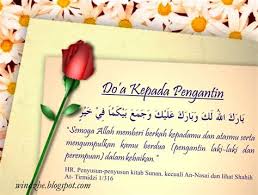 Do'a Kepada Pengantin
بَارَكَ اللهُ لَكَ وَبَارَكَ عَلَيْكَ وَجَمَعَ بَيْنَكُمَا فِي خَيْرٍ
"Semoga Allah memberi berkah kepadamu dan atasmu serta
mengumpulkan kamu berdua (pengantin laki-laki dan
perempuan) dalam kebaikan.
HR. Penyusun-penyusun kitab Sunan, kecuali An-Nasai dan lihat Shahih
At- Tirmidzi 1/316